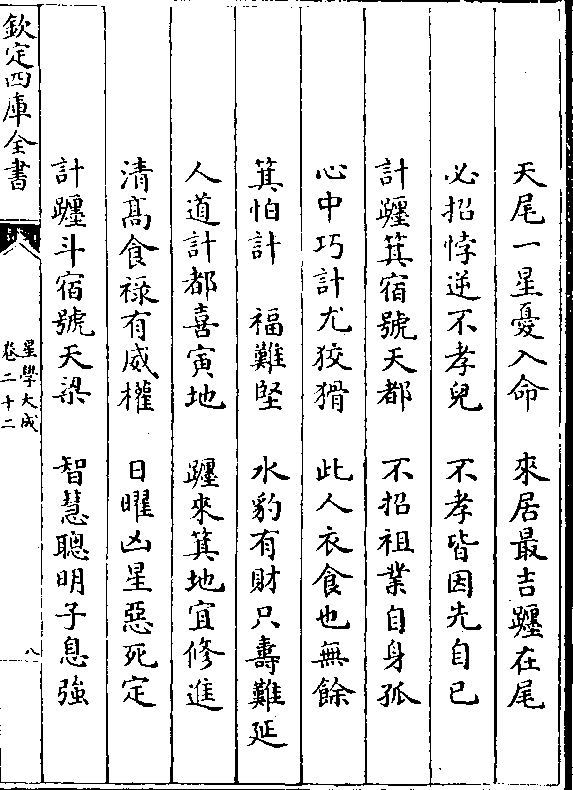 天尾一星憂入命　來居最吉躔在尾
必招悖逆不孝兒　不孝皆因先自己
計躔箕宿號天都　不招祖業自身孤
心中巧計尤狡猾　此人衣食也無餘
箕怕計　福難堅　水豹有財只壽難延
人道計都喜寅地　躔來箕地宜修進
清髙食禄有威權　日曜凶星惡死定
計躔斗宿號天梁　智慧聰明子息強
欽定四庫全書
星學大成
卷二十二
八